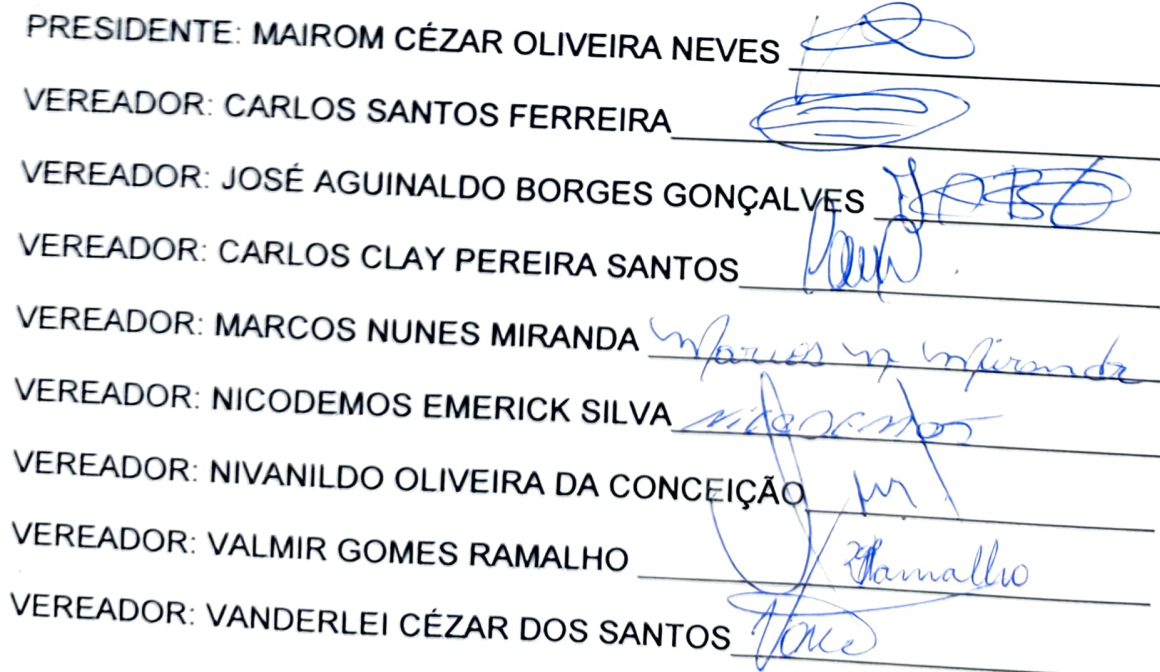 PRESIDENTE: MAIROM CÉZAR OLIVEIRA NEVES
VEREADOR: CARLOS SANTOS FERREIRA
VEREADOR: JOSÉ AGUINALDO BORGES GONÇALVES
VEREADOR: CARLOS CLAY PEREIRA SANTOS
VEREADOR: MARCOS NUNES MIRANDA Marcos N Miranda
VEREADOR: NICODEMOS EMERICK SILVA
VEREADOR: NIVANILDO OLIVEIRA DA CONCEIÇÃO
VEREADOR: VALMIR GOMES RAMALHO Ramalho
VEREADOR: VANDERLEI CÉZAR DOS SANTOS